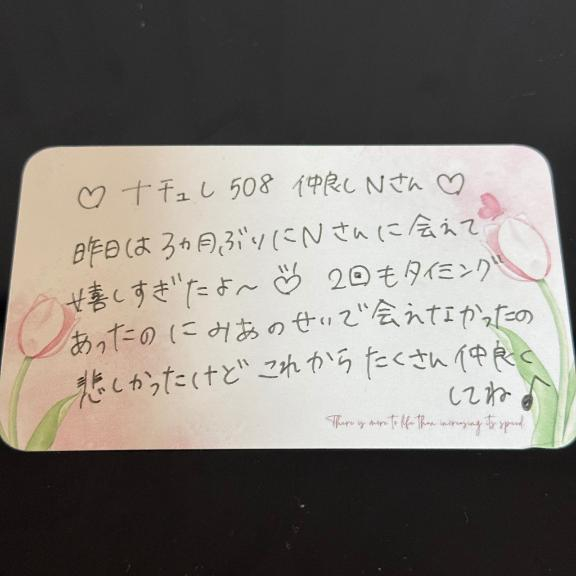 ♡ ナチュし 508 仲良しNさん ♡
昨日は3ヵ月ぶりにNさんに会えて
嬉しすぎたよ〜♡ 2回もタイミング
あったのにみあのせいで会えなかったの
悲しかったけどこれからたくさん仲良く
してね♪
There is more to life than increasing its speed.